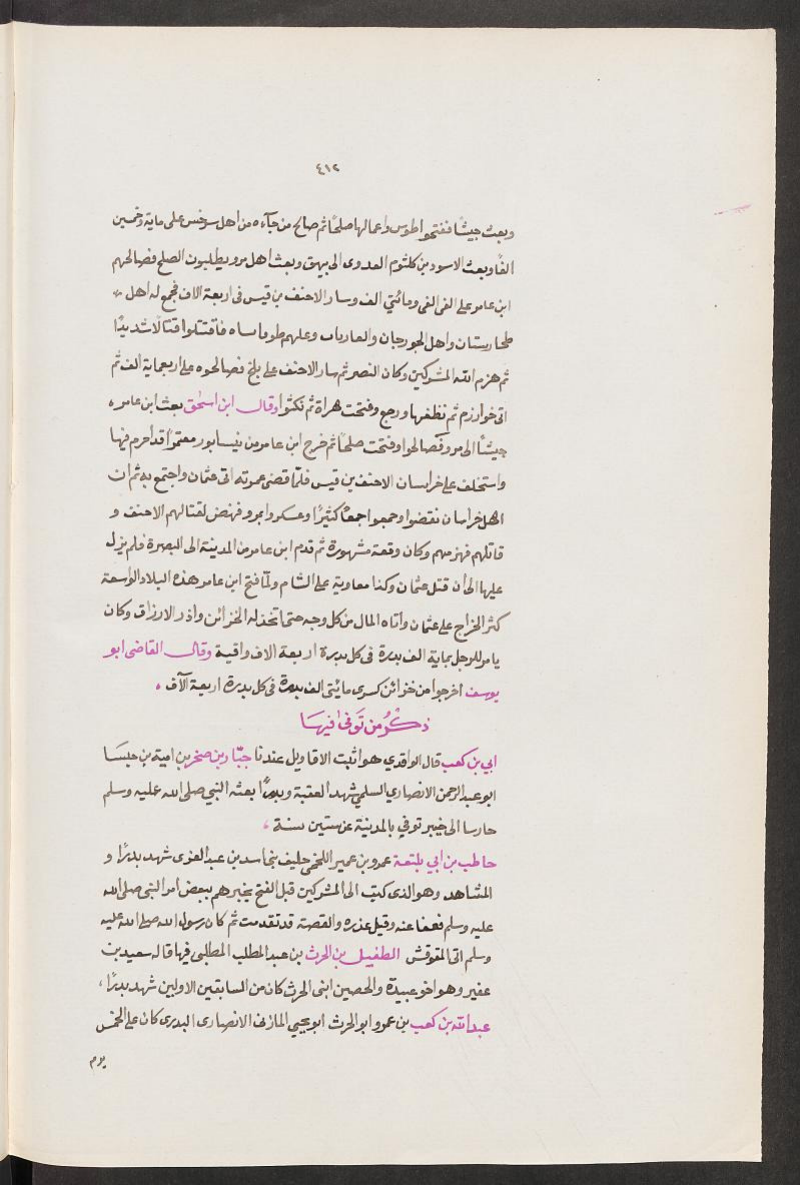 ٤١٢
وبعث جيشًا ففتحوا طوس واعمالها صلحًا ثم صالح من جآءه من اهل سرخس على ماية وخمسين
الفًا وبعث الاسود بن كلثوم العدوى الى بيهق وبعث اهل مرو يطلبون الصلح فصالحهم
ابن عامر على الفى الفى ومائتي الف وسار الاحنف بن قيس فى اربعة الاف فجمع له اهل
طخارستان واهل الجورجان والفارياب وعليهم طوقاساه فاقتتلوا قتالًا شديدًا
ثم هزم الله المشركين وكان النصر ثم سار الاحنف على بلخ فصالحوه على اربعماية الف ثم
اتى خوارزم ثم نطقها ورجع وفتحت هراة ثم نكثوا وقال ابن اسحٰق بعث ابن عامره
جيشًا الى مرو فصالحوا وفتحت صلحًا ثم خرج ابن عامر من نيسابور معتمرًا قد احرم فيها
واستخلف على خراسان الاحنف بن قيس فلمّا قضى عمرته اتى عثمان واجتمع به ثم ان
اهل خراسان نقضوا وجمعوا جمعًا كثيرًا وعسكروا بمرو فنهض لقتالهم الاحنف و
قاتلهم فهزمهم وكان وقعة مشهورة ثم قدم ابن عامر من المدينة الى البصرة فلم يزل
عليها الى ان قتل عثمان وكذا معاوية على الشام ولمّا فتح ابن عامر هذه البلاد الواسعة
كثر الخراج على عثمان واتاه المال من كل وجه حتى اتخذ له الخزائن واذر الارزاق وكان
يامر للرجل بماية الف بدرة فى كل بدرة اربعة الاف واقية وقال القاضى ابو
يوسف اخرجوا من خزائن كسرى مائتى الف بدرة فى كل بدرة اربعة الآف
ذكر من توفى فيها
ابي بن كعب قال الواقدي هو اثبت الاقاويل عندنا جبّار بن صخر بن امية بن خنسا
ابو عبد الرحمن الانصاري السلمي شهد العقبة وبدرًا بعثه النبي صلى الله عليه وسلم
حارسا الى خيبر توفي بالمدينة عن ستين سنة
حاطب بن ابي بلتعة عمرو بن عمير اللخمى حليف بنى اسد بن عبد العزى شهد بدرًا و
المشاهد وهو الذى كتب الى المشركين قبل الفتح يخبرهم ببعض امر النبى صلى الله
عليه وسلم فعفا عنه وقبل عذره والقصة قد تقدمت ثم كان رسول الله صلى الله عليه
وسلم اتى المقوقش الطفيل بن الحرث بن عبد المطلب المطلبى فيها قاله سعيد بن
عفير وهو اخو عبيدة والحصين ابنى الحرث كان من السابقين الاولين شهد بدرًا،
عبد الله بن كعب بن عمرو ابو الحرث ابو يحيى المازنى الانصارى البدرى كان على الخمس
يوم